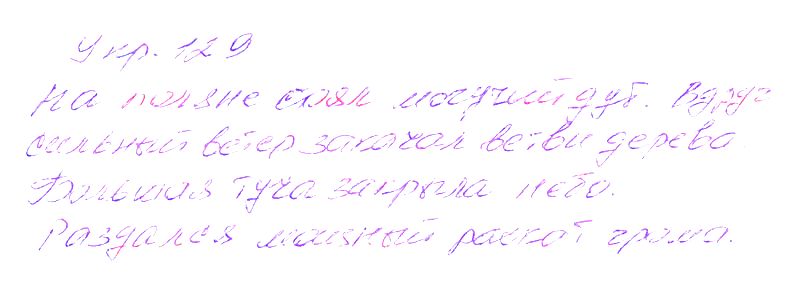 Укр. 129
На поляне стоял могучий дуб. Вдруг
сильный ветер закачал ветви дерева.
Большая туча закрыла небо.
Раздался мощный раскат грома.